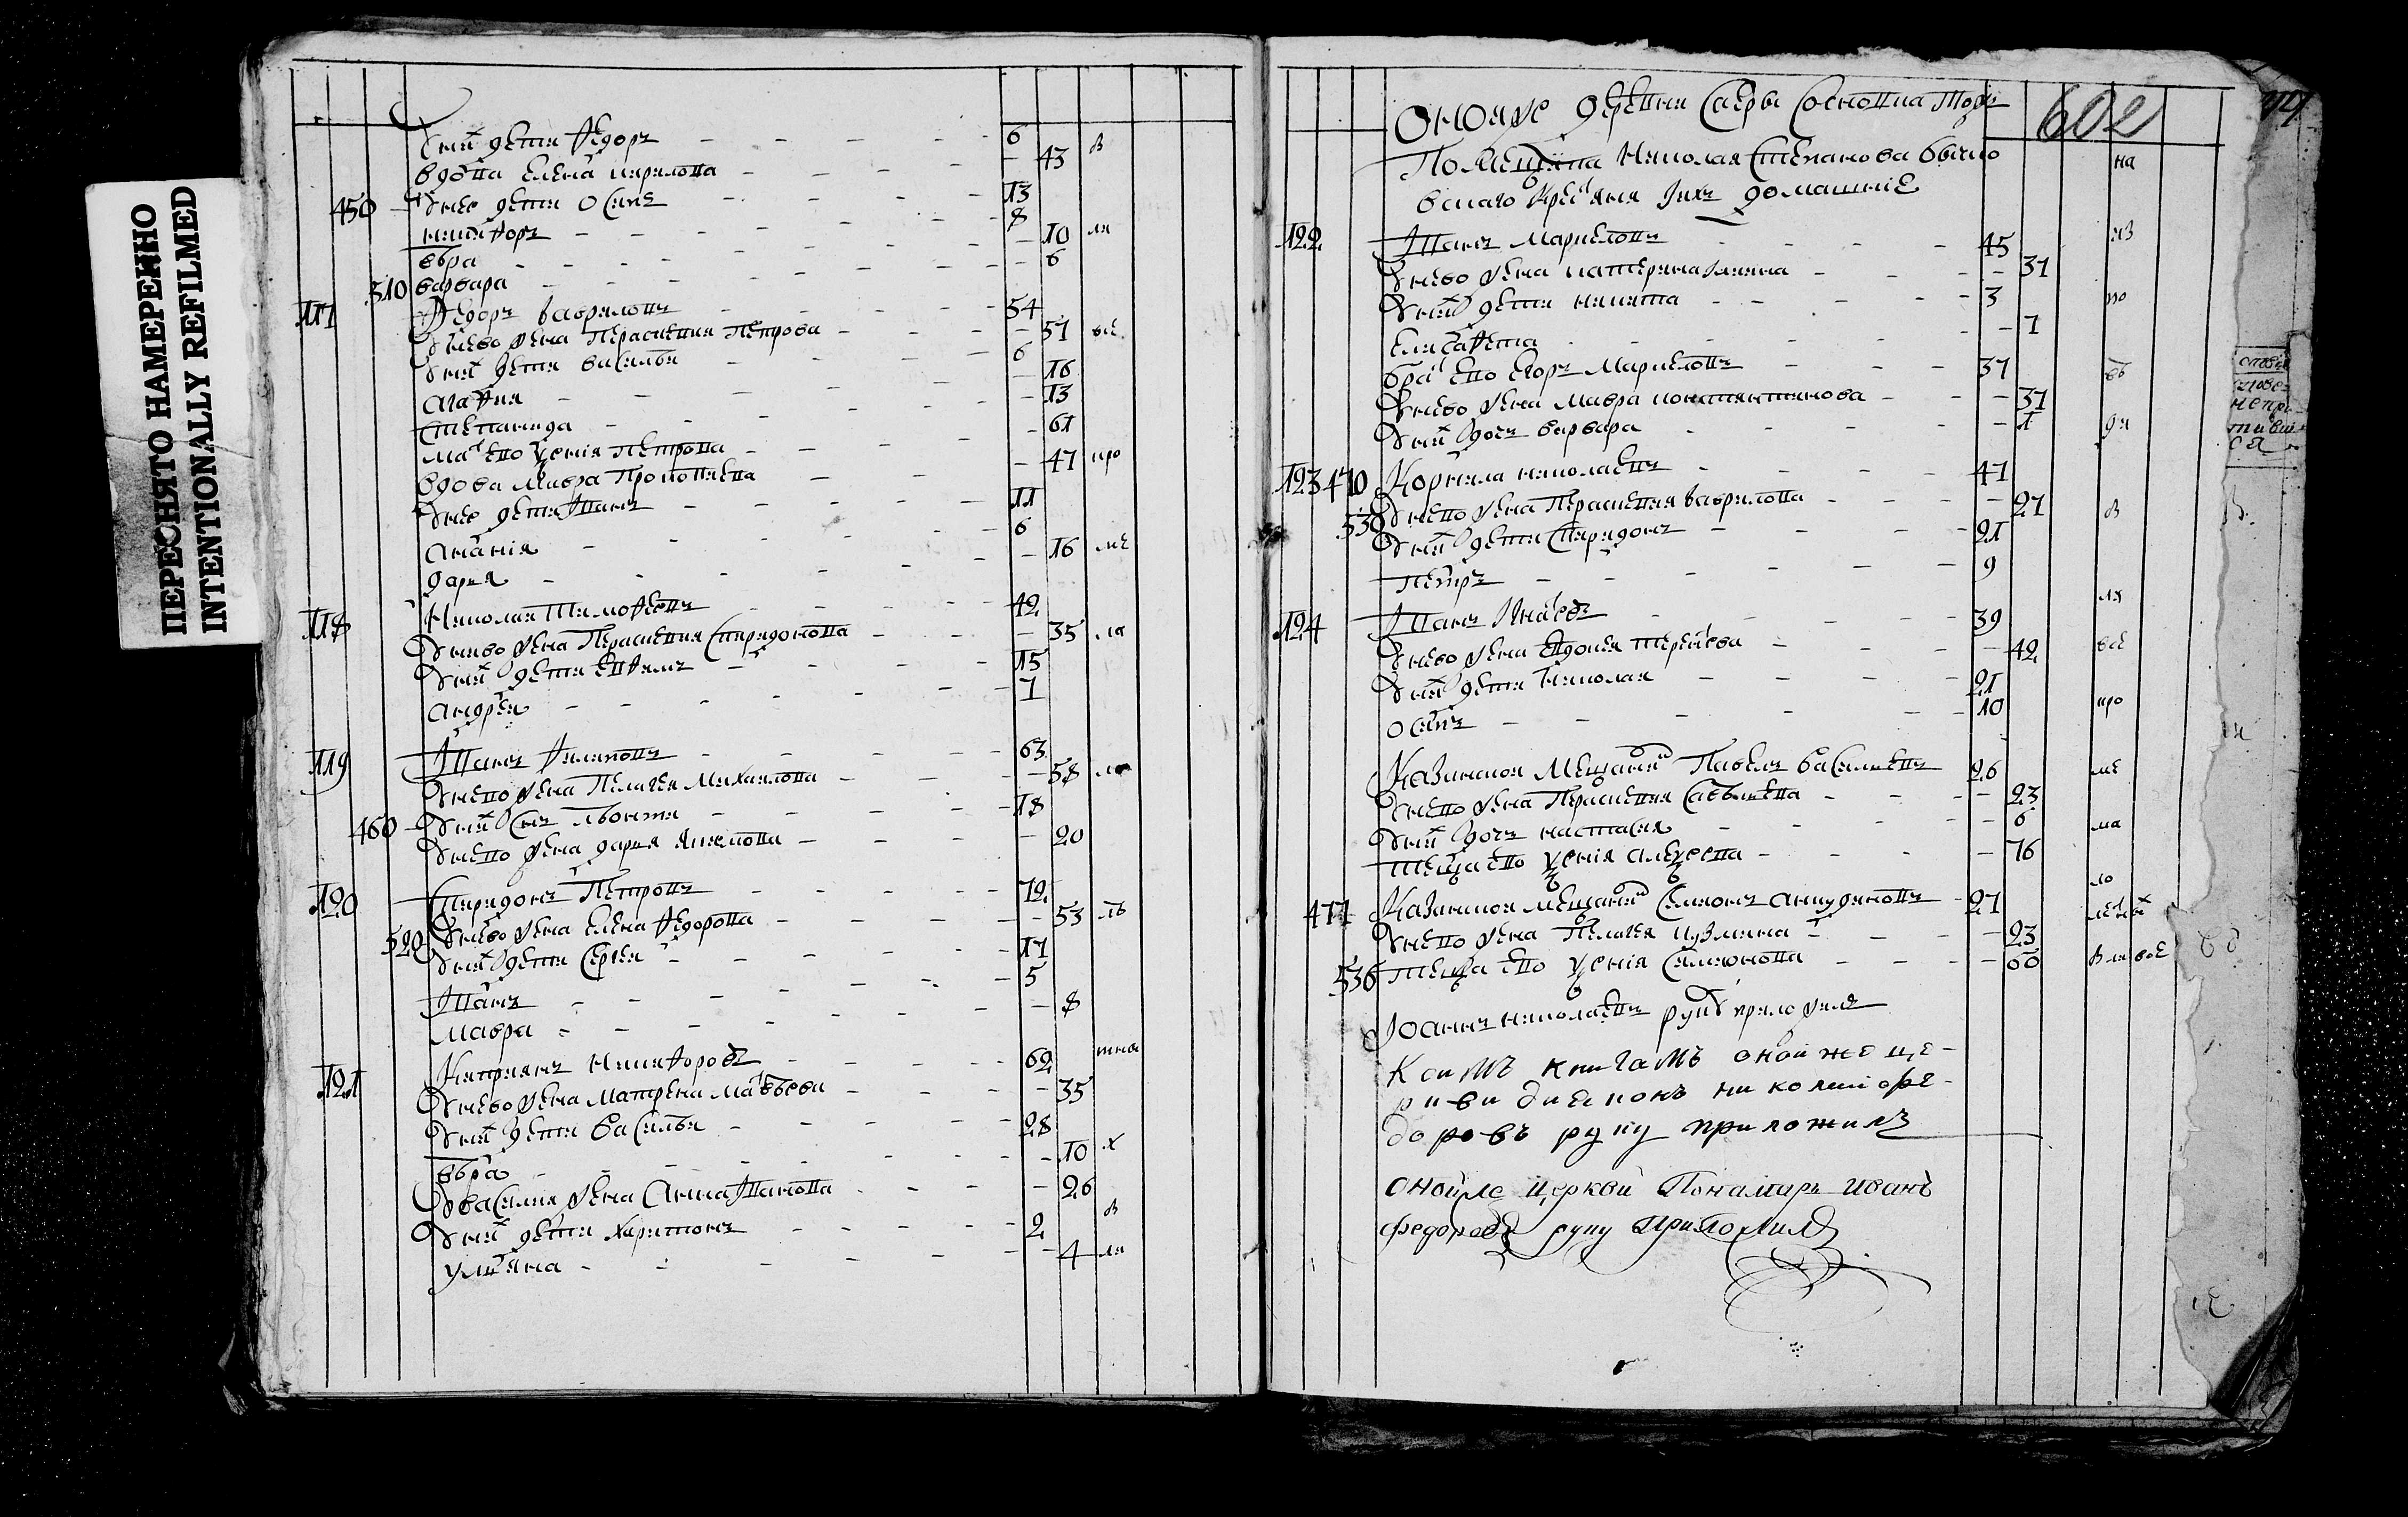 ПЕРЕСНЯТО НАМЕРЕННО
INTENTIONALLY REFILMED
У них дети Федоръ 6
вдова Елена Кирилова 43 в
450 У нее дети Осипъ 13
Никифоръ 8
Вера 10 ли
310 Варвара 6
117 Федоръ Гавриловъ 54
У нево жена Парасковия Петрова 57 все
У них дети Василеи 6
Агафия 16
Степанида 13
мать ево Ксения Петрова 61
вдова Мавра Прокопиева 47 про
У нее дети Иванъ 11
Анания 6
Дарья 16 ме
118 Николаи Тимофеевъ 42
У нево жена Парасковия Спиридонова 35 ма
У них дети Ефимъ 15
Андреи 7
119 Иванъ Филиповъ 63
У нево жена Пелагея Михаилова 58 ло
460 У них сынъ Леонтеи 18
У нево жена Дарья Якимова 20
120 Спиридонъ Петровъ 72
520 У нево жена Елена Федорова 53 ль
У них дети Сергеи 17
Иванъ 5
Мавра 8
121 Киприянъ Никифоровъ 62 тна
У нево жена Матрена Матвеева 35
У них дети Василеи 28
Вера 10 х
У Василия жена Анна Иванова 26
У них дети Харитонъ 2 в
Ульяна 4 ли
Оной же деревни 602
Помещика Николая Степанова
крестьяня и их домашние на
122 Иванъ Маркеловъ 45 из
У нево жена Катерина 31
У них дети Никита 3 но
Елисавета 7
братъ ево Егоръ Маркеловъ 37 въ
У нево жена Мавра Константинова 37
У них дочь Варвара 1 ди
123 470 Корнила Николаевъ 47
530 У нево жена Парасковия Гаврилова 27 в
У них дети Спиридонъ 21
Петръ 9
124 Иванъ Игнатьевъ 39 ли
У нево жена Евдокея Терентьева 42 все
У них дети Николаи 21
Осипъ 10 про
Казинскои мещанинъ Павелъ Васильевъ 26 ме
У нево жена Парасковия Савельева 23
У них дочь Настасия 6 ма
теща ево Ксения Алексеева 76
477 Казинскои мещанинъ Симионъ Анкудиновъ 27 ло
У нево жена Пелагея Кузмина 23
536 теща ево Ксения Симионова 60 в ли все
Иоаннъ Николаевъ руку приложилъ
К симъ книгамъ оной же це-
ркви диеконъ Николаи Фе-
доровъ руку приложилъ
Оной же церкви Понамарь Иванъ
Федоровъ руку приложилъ